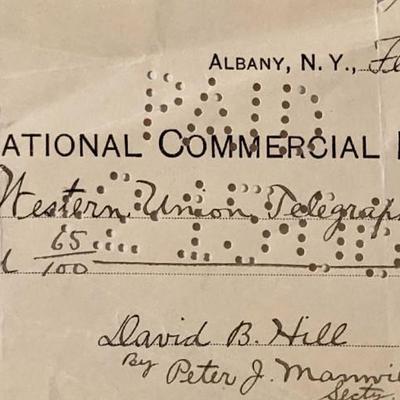 ALBANY, N. Y.,
PAID
ATIONAL COMMERCIAL
Western Union Telegrap
65/100
David B. Hill
By Peter J. Manwi
Secty.